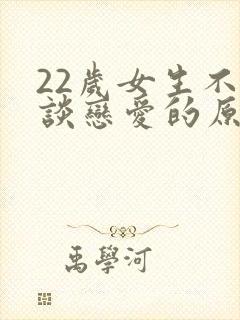 22歲女生不
談戀愛的原
禹學河